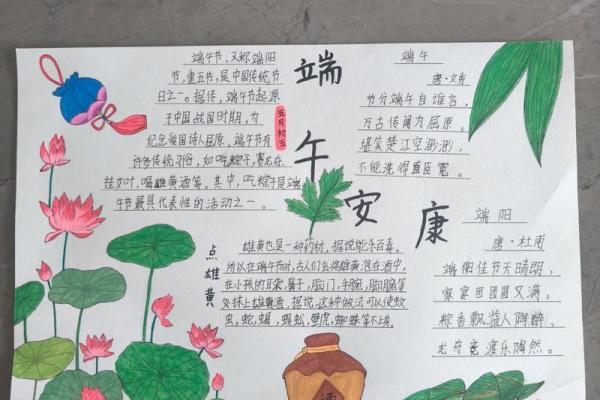 端午安康
端午节,又称端阳
节,重五节,是中国传统节
日之一。据传,端午节起源
于中国战国时期,为
纪念爱国诗人屈原。端午节有
许多传统习俗,如吃粽子,赛龙舟,
挂艾叶,喝雄黄酒等。其中,吃粽子是端
午节最具代表性的活动之一。
五月初五
端午
唐·文秀
节分端午自谁言,
万古传闻为屈原。
堪笑楚江空渺渺,
不能洗得直臣冤。
点雄黄
雄黄也是一种药材,据说能杀百毒。
所以在端午节时,古人们会将雄黄泡在酒中,
在小孩的耳朵,鼻子,脑门,手腕,脚腕等
处抹上雄黄酒。据说,这种做法可以使蚊
虫,蛇,蝎,蜈蚣,壁虎,蜘蛛等不上身。
端阳
唐·杜甫
端阳佳节天晴朗,
家家团圆又满。
粽香飘溢人陶醉,
龙舟竞渡乐陶然。
酒